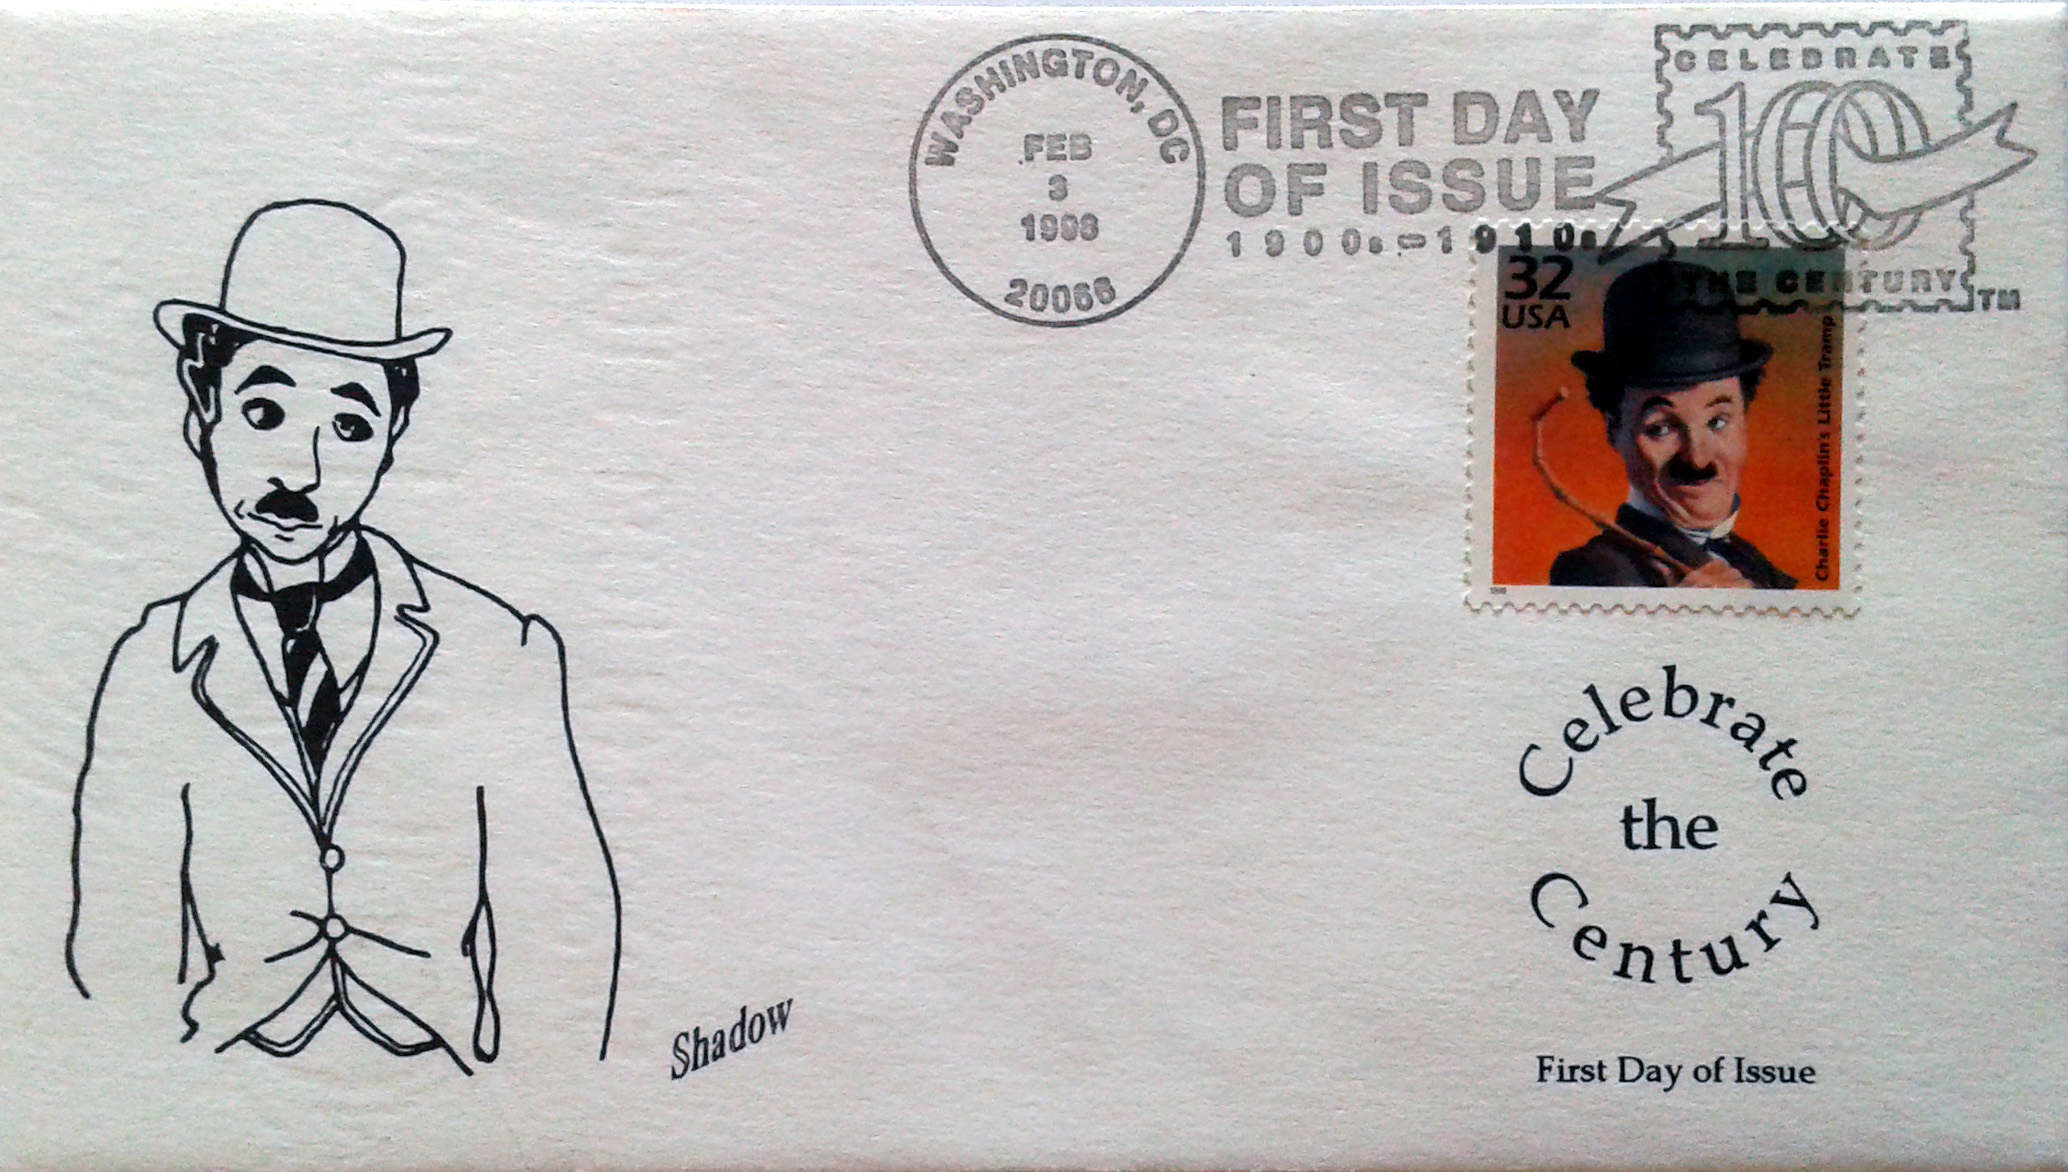 WASHINGTON, DC
FEB
3
1998
20066
FIRST DAY
OF ISSUE
1900s-1910s
CELEBRATE
100
THE CENTURY
TM
32
USA
Charlie Chaplin's Little Tramp
1998
Celebrate
the
Century
First Day of Issue
Shadow